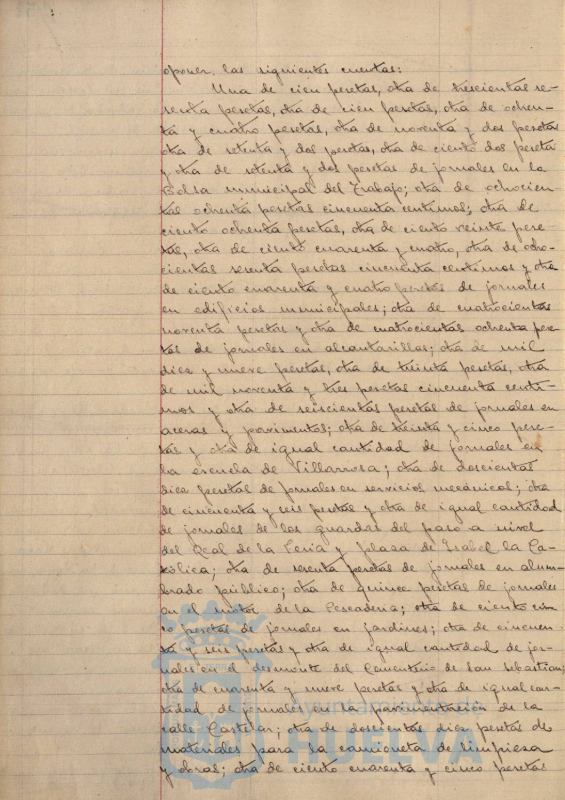 oponer las siguientes cuentas:
Una de cien pesetas, otra de trescientas se-
senta pesetas, otra de cien pesetas, otra de ochen-
ta y cuatro pesetas, otra de noventa y dos pesetas
otra de setenta y dos pesetas, otra de ciento dos pesetas
y otra de setenta y dos pesetas de jornales en la
Bolsa municipal del Trabajo; otra de ochocien-
tas ochenta pesetas cincuenta centimos; otra de
ciento ochenta pesetas, otra de ciento veinte pese-
tas, otra de ciento cuarenta y cuatro, otra de ocho-
cientas sesenta pesetas cincuenta centimos y otra
de ciento cuarenta y cuatro pesetas de jornales
en edificios municipales; otra de cuatrocientas
noventa pesetas y otra de cuatrocientas ochenta pese-
tas de jornales en alcantarillas; otra de mil
diez y nueve pesetas, otra de treinta pesetas, otra
de mil noventa y tres pesetas cincuenta centi-
mos y otra de seiscientas pesetas de jornales en
aceras y pavimentos; otra de treinta y cinco pese-
tas y otra de igual cantidad de jornales en
la escuela de Villarrosa; otra de doscientas
diez pesetas de jornales en servicios mecánicos; otra
de cincuenta y seis pesetas y otra de igual cantidad
de jornales de los guardas del paso a nivel
del Real de la Feria y plaza de Isabel la Ca-
tólica; otra de sesenta pesetas de jornales en alum-
brado público; otra de quince pesetas de jornales
en el motor de la Pescaderia; otra de ciento cin-
co pesetas de jornales en jardines; otra de cincuen-
ta y seis pesetas y otra de igual cantidad de jor-
nales en el desmonte del Cementerio de San Sebastian;
otra de cuarenta y nueve pesetas y otra de igual can-
tidad de jornales en la pavimentación de la
calle Castelar; otra de doscientas diez pesetas de
materiales para la camioneta de limpieza
y obras; otra de ciento cuarenta y cinco pesetas
HUELVA